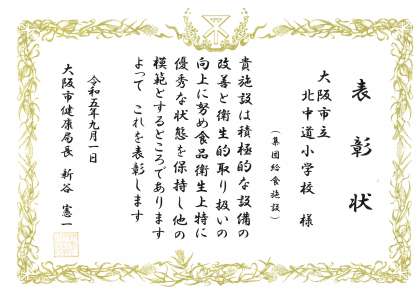 表彰状
大阪市立
北中道小学校　様
（集団給食施設）
貴施設は積極的な設備の
改善と衛生的取り扱いの
向上に努め食品衛生上特に
優秀な状態を保持し他の
模範とするところであります
よって　これを表彰します
令和五年九月一日
大阪市健康局長　新谷　憲一